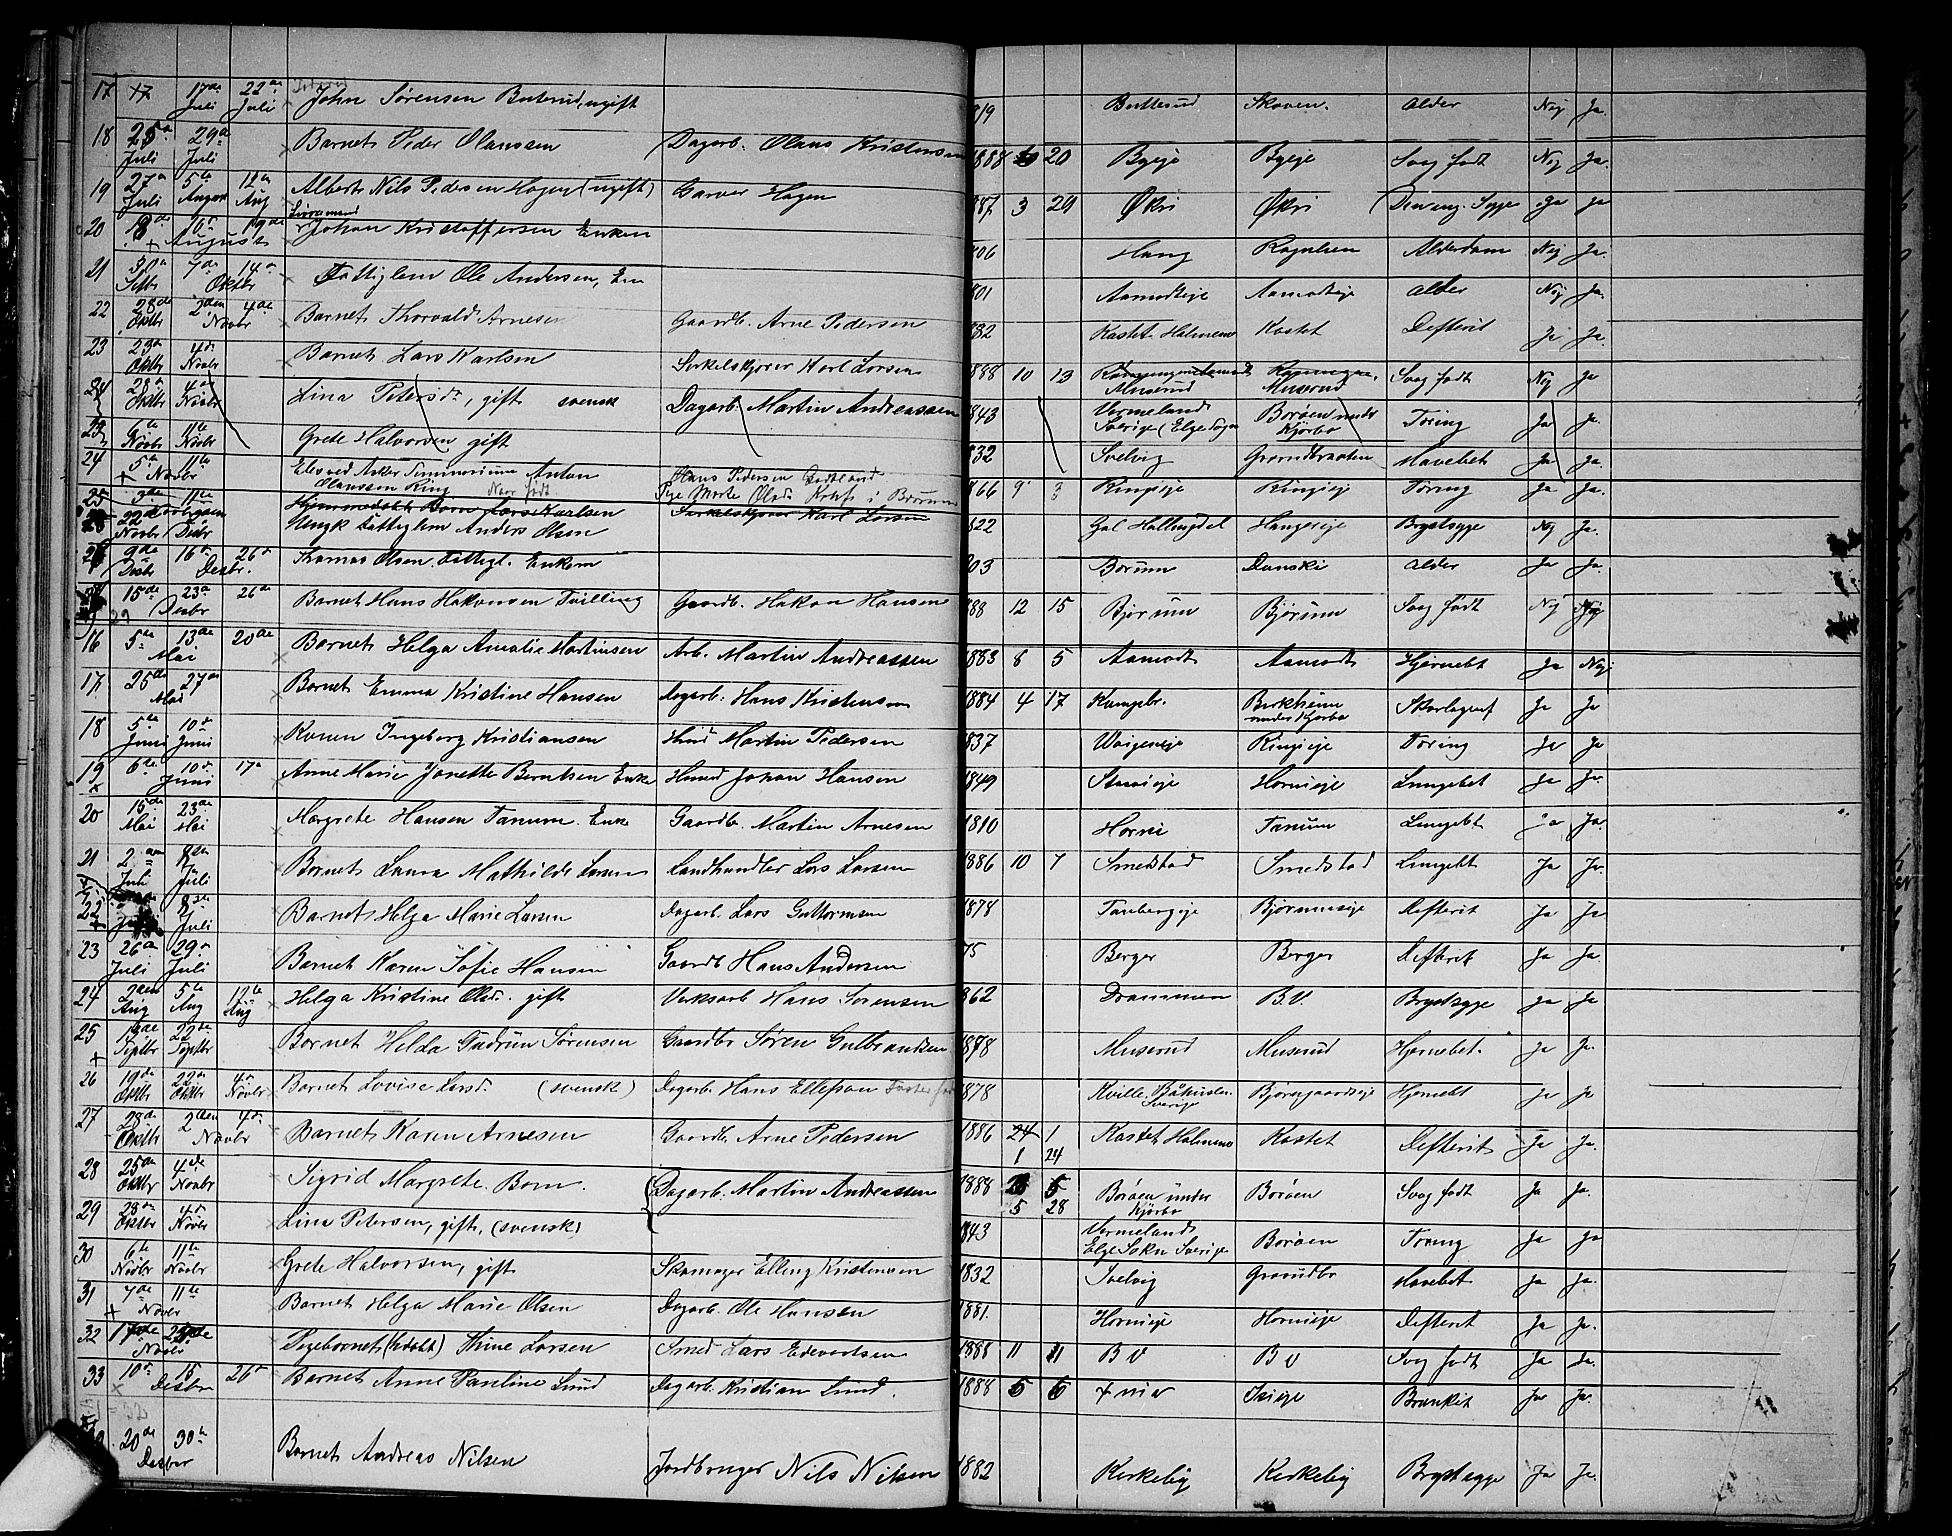 17 17 17de Juli 22de Juli John Sørensen Buterud, ugift 819 Buttesud Skoven. Alder Nej Ja.
18 25de Juli 29de Juli Barnet Peder Olaussen Dagarb. Olaus Kristensen 1888 20 Byeje Byeje Svag født Nej Ja.
19 27de Juli 5te August 12te Aug Albert Nils Pedersen Hagen (ugift) Garver Hagen 867 3 29 Økri Økri Ja Ja
20 August 19de Johan Kristoffersen Enkem 806 Haug Alderdom Nej Ja.
21 30de Setbr 7de 14de Oktbr Fattiglem Ole Andersen, Em 801 Aamodteje Aamodteje Alder Nej Ja.
22 28de Oktbr 2den 4de Novbr Barnet Thorvald Arnesen Gaardb. Arne Pedersen 882 Kastet Holmene Kastet Defterit Ja Ja.
23 23de Oktbr 4de Novbr Barnet Lars Karlsen Sirkelskjører Karl Larsen 1888 10 13 Muserud Muserud Svag født Nej Ja
24 28de Oktbr 4de Novbr Lina Petersdr, gift svensk Dagarb. Martin Andreassen 1843 Vermeland Sverige (Elge Sogn Borøen under Kjørbo Tæring Ja Ja.
23 6te Novbr 11te Novbr Grete Halvorsen gift 832 Svelvig Grændbraaten Mavebet Ja Ja.
24 5te Novbr 11te Elev ved Asker Seminarium Anton Olaussen Ring 866 9 3 Ringieje Ringieje Tæring Ja Ja.
25 3de 11te Hjemmedøbt Barn Lars Karlsen Sirkelskjører Karl Larsen
22de Novbr Desbr Ungk. Fattiglem Anders Olsen 822 Gol Hallingdal Haugeseje Brystsyge Nej Ja.
26 9de Desbr 16de 26de Desbr. Thomas Olsen Fattigl. Enkem 803 Bærum Danske Alder Ja Ja.
15de 23de Desbr 26de Barnet Hans Hakonsen Tvilling Gaardb. Hakon Hansen 888 12 15 Bjørum Bjørum Svag født Nej Nej
16 5te 13de Mai 20de Barnet Helga Amalie Martinsen Arb. Martin Andreassen 1883 8 5 Aamodt Aamodt Hjernebt Ja Nej
17 25de Mai 27de Barnet Emma Kristine Hansen Dagarb. Hans Kristensen 1884 4 17 Kampebr. Birkheim under Kjørbo Skarlagenf Ja Ja
18 5te Juni 10de Juni Karen Ingeborg Kristiansen Hmd Martin Pedersen 837 Ringieje Tæring Ja Ja
19 6te 10de Juni 17de Anne Marie Janette Berntsen Enke Hmd Johan Hansen 1849 Hornieje Lungebet Ja Ja.
20 15de Mai 23de Mai Margrete Hansen Tanum. Enke Gaardb. Martin Arnesen 1810 Horni Tanum Lungebt Ja Ja.
21 2den Juli 8de Juli Barnet Laura Mathilde Larsen Landhandler Lars Larsen 1886 10 7 Smedstad Smedstad Lungebt Ja Ja.
22 8de Juli Barnet Helga Marie Larsen Dagarb. Lars Guttormsen 1878 Tanbergeje Bjørumseje Defterit Ja Ja
23 26de Juli 29de Juli Barnet Karen Sofie Hansen Gaardb Hans Andersen 75 Berger Berger Defterit Ja Ja
24 2den Aug 5te Aug 12te Aug Helga Kristine Olsd. gift Verksarb Hans Sørensen 862 Drammen B.V Brystsyge Ja Ja
25 19de Septbr 22de Septbr Barnet Hilda Gudrun Sørensen Gaardbr Søren Gulbrandsen 1878 Muserud Muserud Hjernebet. Ja Ja.
26 19de Oktbr 22de Oktbr 4de Novbr Barnet Lovise Larsd. (svensk) Dagarb. Hans Ellefsen 1878 Kville. Båhuslen. Sverige Bjørnegaardseje Hjernebt Ja Ja
27 28de Oktbr 2den 4de Novbr Barnet Karen Arnesen Gaardb. Arne Pedersen 1886 24 1 1 24 Kastet Holmene Kastet Defterit Ja Ja.
28 25de Oktbr 4de Novbr Sigrid Margrete. Barn. Dagarb. Martin Andreassen 1888 5 5 28 Borøen under Kjørbo Borøen Svag født Ja Ja
29 28de Oktbr 4de Novbr Lina Petersen, gift, (svensk) 843 Vermeland Elge Sokn Sverige Borøen Tæring Ja Ja
30 6te Novbr 11te Novbr Grete Halvorsen, gift Skomager Elling Kristensen 1832 Svelvig Grændbr Mavebet Ja Ja.
31 7de Novbr 11te Barnet Helga Marie Olsen Dagarb. Ole Hansen 1881. Hornieje Hornieje Defterit Ja Ja.
32 17de Novbr Pigebarnet (hdøbt) Thine Larsen Smed Lars Edvartsen 1888 11 11 B V B V Svag født Ja Ja.
33 10de 15 Desbr 26de Barnet Anne Pauline Lund Dagarb. Kristian Lund. 1888 5 6 Bronkit Ja Ja.
20de Desbr 30te Barnet Andreas Nilsen Jordbruger Nils Nilsen 1882 Kirkeby Kirkeby Brystsyge Ja Ja.